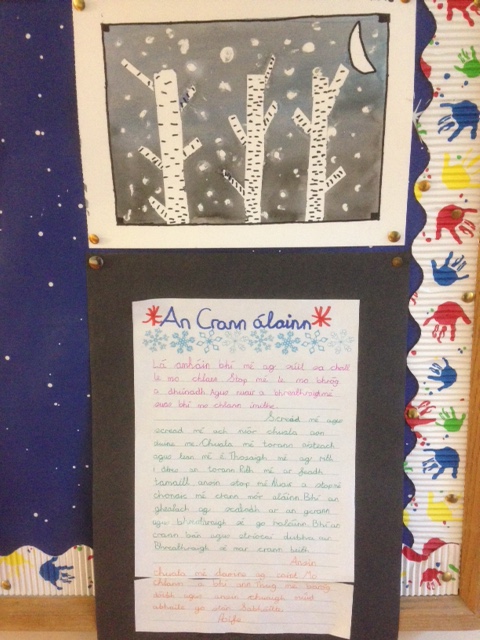 An Crann álainn
Lá amháin bhí mé ag siúl sa choill
le mo chlann Stop mé le mo bhróg
a dhúnadh Agus nuair a bhreathnaigh mé
suas bhí mo chlann imithe.
Scread mé agus
scread mé ach níor chuala aon
duine mé. Chuala mé torann
agus lean mé é Thosaigh mé ag rith
an torann. Rith mé ar feadh
tamaill ansin stop mé. Nuair a stop mé
chonaic mé crann mór álainn. Bhí an
ghealach ag ar an gcrann
agus bhreathnaigh sé go hálainn. Bhí an
crann bán agus dubha air.
Bhreathnaigh sé mar crann beith.
Ansin
chuala mé daoine ag caint Mo
chlann Bhí ann. Thug mé
dóibh agus ansin chuaigh muid
abhaile go dtí
Aoife